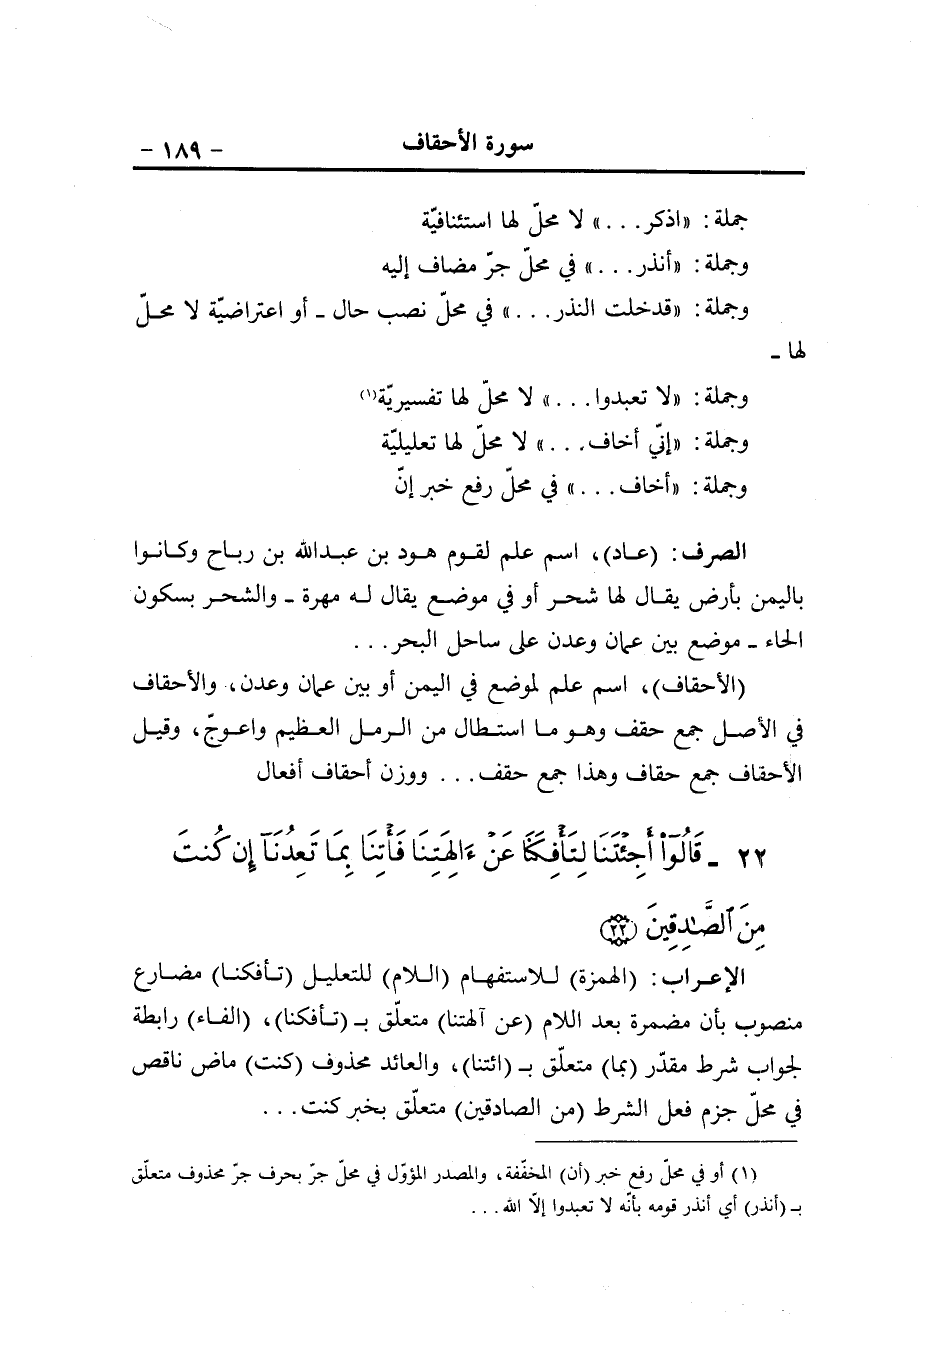 سورة الأحقاف - ١٨٩ -
جملة: «اذكر...» لا محلّ لها استئنافيّة
وجملة: «أنذر...» في محلّ جرّ مضاف إليه
وجملة: «قدخلت النذر...» في محلّ نصب حال ـ أو اعتراضيّة لا محلّ
لها ـ
وجملة: «لا تعبدوا...» لا محلّ لها تفسيريّة(١)
وجملة: «إنّي أخاف...» لا محلّ لها تعليليّة
وجملة: «أخاف...» في محلّ رفع خبر إنّ
الصرف: (عاد)، اسم علم لقوم هود بن عبدالله بن رباح وكانوا
باليمن بأرض يقال لها شحر أو في موضع يقال له مهرة ـ والشحر بسكون
الحاء ـ موضع بين عمان وعدن على ساحل البحر...
(الأحقاف)، اسم علم لموضع في اليمن أو بين عمان وعدن، والأحقاف
في الأصل جمع حقف وهو ما استطال من الرمل العظيم واعوجّ، وقيل
الأحقاف جمع حقاف وهذا جمع حقف... ووزن أحقاف أفعال
٢٢ ـ قَالُوٓا۟ أَجِئْتَنَا لِتَأْفِكَنَا عَنْ ءَالِهَتِنَا فَأْتِنَا بِمَا تَعِدُنَآ إِن كُنتَ
مِنَ ٱلصَّـٰدِقِينَ ﴿٢٢﴾
الإعراب: (الهمزة) للاستفهام (اللام) للتعليل (تأفكنا) مضارع
منصوب بأن مضمرة بعد اللام (عن آلهتنا) متعلّق بـ (تأفكنا)، (الفاء) رابطة
لجواب شرط مقدّر (بما) متعلّق بـ (ائتنا)، والعائد محذوف (كنت) ماض ناقص
في محلّ جزم فعل الشرط (من الصادقين) متعلّق بخبر كنت...
(١) أو في محلّ رفع خبر (أن) المخفّفة، والمصدر المؤوّل في محلّ جرّ بحرف جرّ محذوف متعلّق
بـ (أنذر) أي أنذر قومه بأنّه لا تعبدوا إلاّ الله...